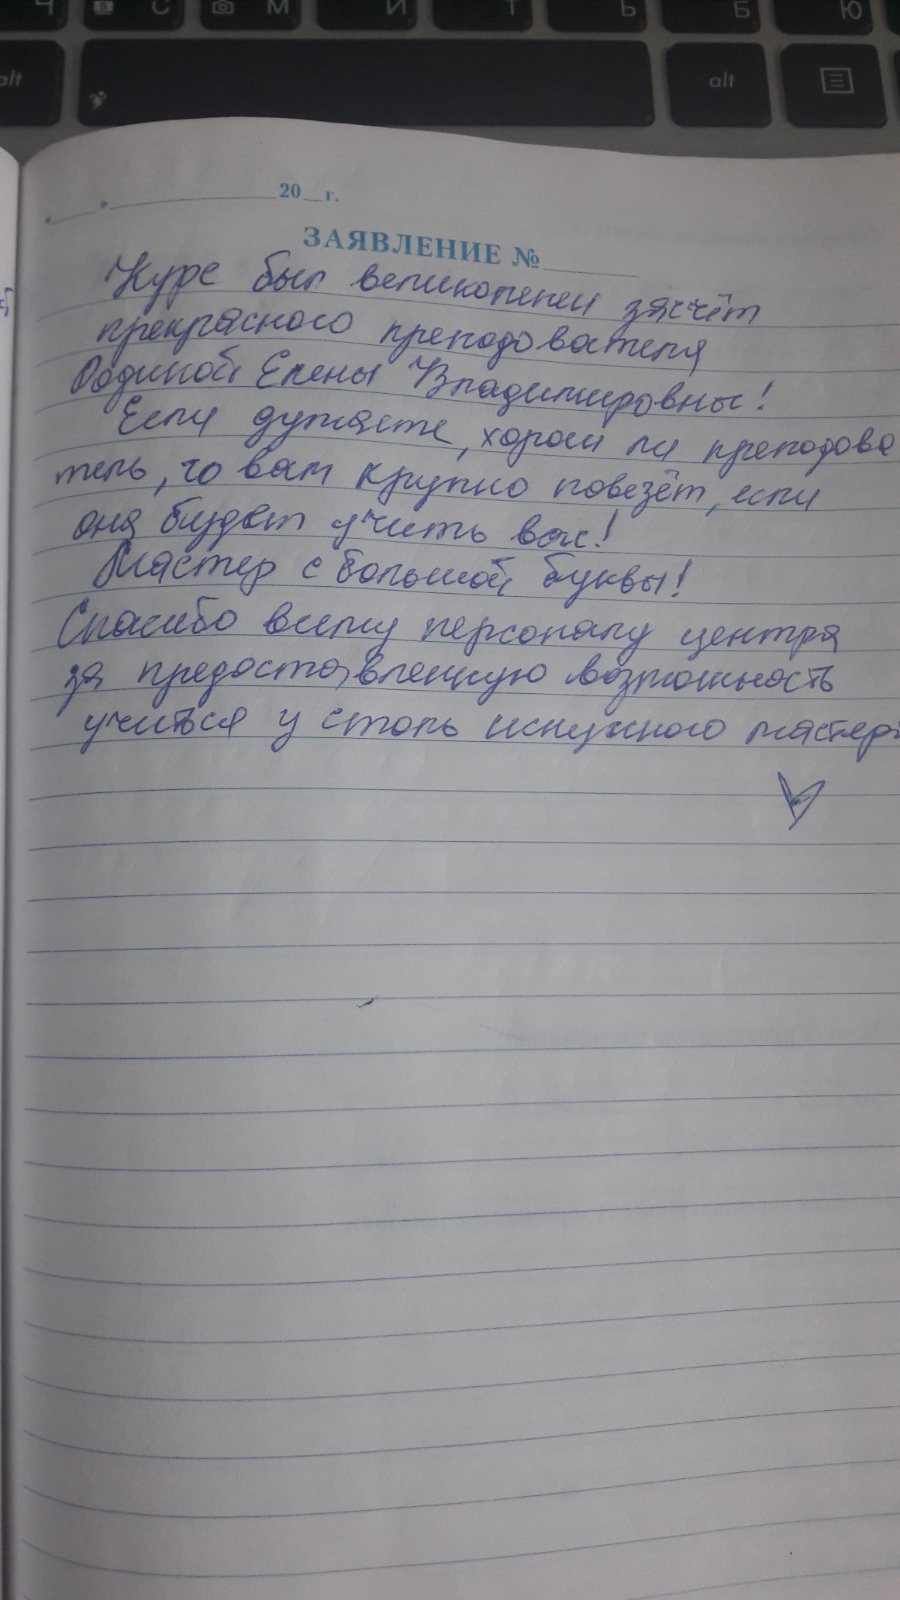 Ч С М И Т Ь Б Ю
alt alt
« » 20 г.
ЗАЯВЛЕНИЕ №
Курс был великолепен засчёт
прекрасного преподователя
Родиной Елены Владимировны!
Если думаете, хорош ли преподова
тель, то вам крупно повезёт, если
она будет учить вас!
Мастер с большой буквы!
Спасибо всему персоналу центра
за предоставленную возможность
учиться у столь искусного мастера